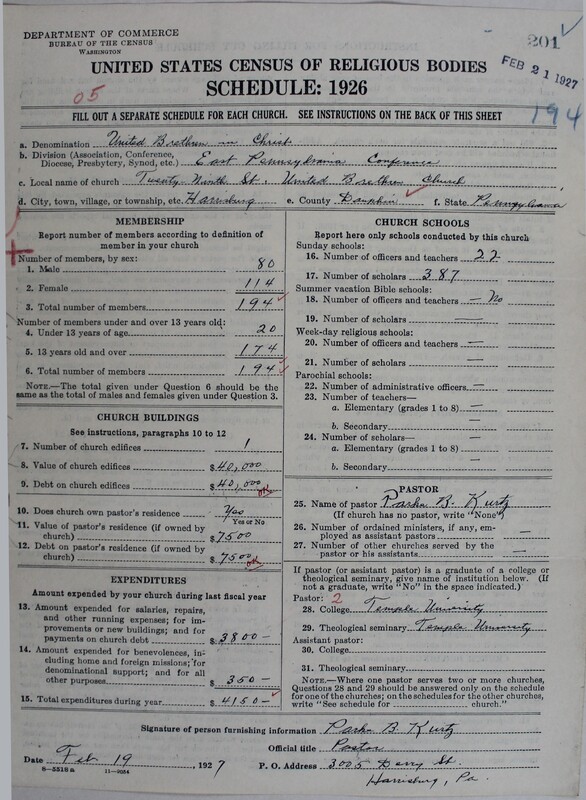 DEPARTMENT OF COMMERCE
BUREAU OF THE CENSUS
WASHINGTON
201
FEB 21 1927
UNITED STATES CENSUS OF RELIGIOUS BODIES
SCHEDULE: 1926
05
194
FILL OUT A SEPARATE SCHEDULE FOR EACH CHURCH. SEE INSTRUCTIONS ON THE BACK OF THIS SHEET
a. Denomination United Brethren in Christ
b. Division (Association, Conference, Diocese, Presbytery, Synod, etc.) East Pennsylvania Conference
c. Local name of church Twenty Ninth St. United Brethren Church
d. City, town, village, or township, etc. Harrisburg e. County Dauphin f. State Pennsylvania
MEMBERSHIP
Report number of members according to definition of
member in your church
Number of members, by sex:
1. Male 80
2. Female 114
3. Total number of members 194
Number of members under and over 13 years old:
4. Under 13 years of age 20
5. 13 years old and over 174
6. Total number of members 194
NOTE.—The total given under Question 6 should be the
same as the total of males and females given under Question 3.
CHURCH BUILDINGS
See instructions, paragraphs 10 to 12
7. Number of church edifices 1
8. Value of church edifices $40,000
9. Debt on church edifices $40,000 OK
10. Does church own pastor's residence Yes
Yes or No
11. Value of pastor's residence (if owned by
church) $7500
12. Debt on pastor's residence (if owned by
church) $7500 OK
EXPENDITURES
Amount expended by your church during last fiscal year
13. Amount expended for salaries, repairs,
and other running expenses; for im-
provements or new buildings; and for
payments on church debt $3800—
14. Amount expended for benevolences, in-
cluding home and foreign missions; for
denominational support; and for all
other purposes $350—
15. Total expenditures during year $4150—
CHURCH SCHOOLS
Report here only schools conducted by this church
Sunday schools:
16. Number of officers and teachers 22
17. Number of scholars 387
Summer vacation Bible schools:
18. Number of officers and teachers — No
19. Number of scholars —
Week-day religious schools:
20. Number of officers and teachers —
21. Number of scholars —
Parochial schools:
22. Number of administrative officers —
23. Number of teachers—
a. Elementary (grades 1 to 8) —
b. Secondary —
24. Number of scholars—
a. Elementary (grades 1 to 8) —
b. Secondary —
PASTOR
25. Name of pastor B. Kurtz
(If church has no pastor, write "None")
26. Number of ordained ministers, if any, em-
ployed as assistant pastors —
27. Number of other churches served by the
pastor or his assistants —
If pastor (or assistant pastor) is a graduate of a college or
theological seminary, give name of institution below. (If
not a graduate, write "No" in the space indicated.)
Pastor: 2
28. College Temple University
29. Theological seminary Temple University
Assistant pastor:
30. College
31. Theological seminary
NOTE.—Where one pastor serves two or more churches,
Questions 28 and 29 should be answered only on the schedule
for one of the churches; on the schedules for the other churches,
write "See schedule for church."
Signature of person furnishing information B. Kurtz
Official title Pastor
Date Feb 19, 1927 P. O. Address 3005 Derry St.
Harrisburg, Pa.
8—5518 a 11—9054